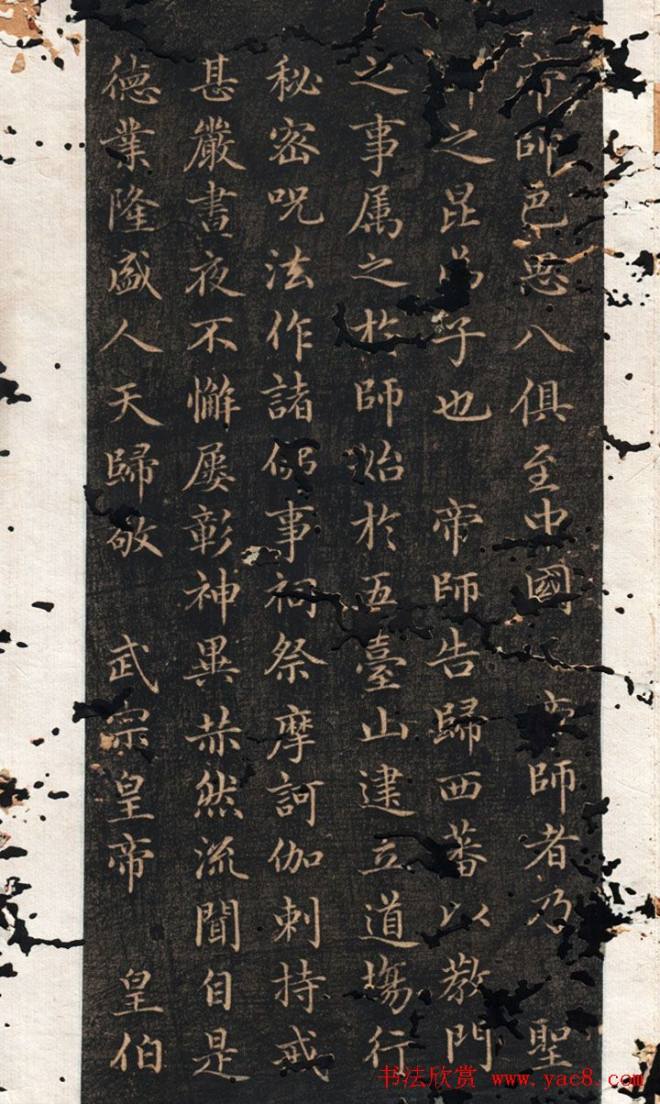 帝師邑思八俱至中國　帝師者乃　聖
之昆弟子也　帝師告歸西蕃以教門
之事属之於師始於五臺山建立道場行
秘密呪法作諸佛事祠祭摩訶伽剌持戒
甚嚴晝夜不懈屡彰神異赫然流聞自是
德業隆盛人天歸敬　武宗皇帝　皇伯
书法欣赏 www.yac8.com